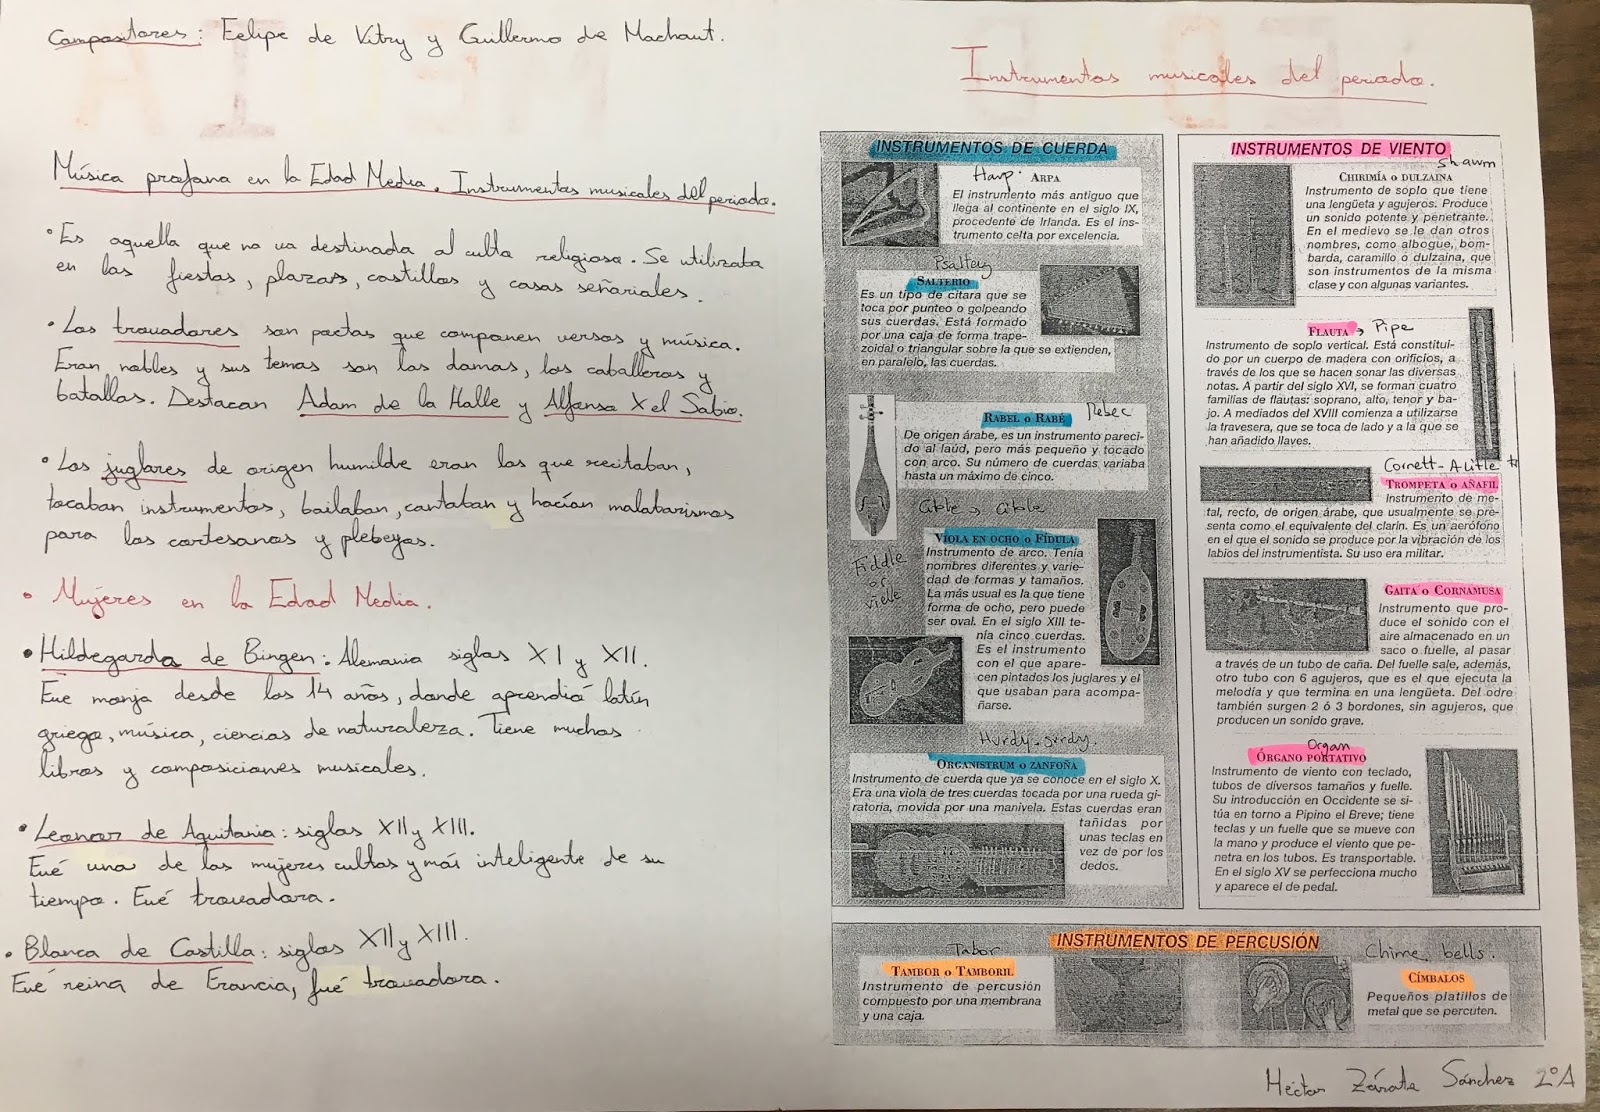 Compositores: Felipe de Vitry y Guillermo de Machaut.
Música profana en la Edad Media. Instrumentos musicales del periodo.
• Es aquella que no va destinada al culto religioso. Se utilizaba
en las fiestas, plazas, castillos y casas señoriales.
• Los trovadores son poetas que componen versos y música.
Eran nobles y sus temas son las damas, los caballeros y
batallas. Destacan Adam de la Halle y Alfonso X el Sabio.
• Los juglares de origen humilde eran los que recitaban,
tocaban instrumentos, bailaban, cantaban y hacían malabarismos
para los cortesanos y plebeyos.
• Mujeres en la Edad Media.
• Hildegarda de Bingen: Alemania siglos XI y XII.
Fue monja desde los 14 años, donde aprendió latín
griego, música, ciencias de naturaleza. Tiene muchos
libros y composiciones musicales.
• Leonor de Aquitania: siglos XII y XIII.
Fué una de las mujeres cultas y más inteligente de su
tiempo. Fué trovadora.
• Blanca de Castilla: siglos XII y XIII.
Fué reina de Francia, fué trovadora.
Instrumentos musicales del periodo.
INSTRUMENTOS DE CUERDA
Harp. ARPA
El instrumento más antiguo que
llega al continente en el siglo IX,
procedente de Irlanda. Es el ins-
trumento celta por excelencia.
Psaltery
SALTERIO
Es un tipo de cítara que se
toca por punteo o golpeando
sus cuerdas. Está formado
por una caja de forma trape-
zoidal o triangular sobre la que se extienden,
en paralelo, las cuerdas.
RABEL O RABÉ Rebec
De origen árabe, es un instrumento pareci-
do al laúd, pero más pequeño y tocado
con arco. Su número de cuerdas variaba
hasta un máximo de cinco.
VIOLA EN OCHO O FÍDULA
Fiddle
or
vielle
Instrumento de arco. Tenía
nombres diferentes y varie-
dad de formas y tamaños.
La más usual es la que tiene
forma de ocho, pero puede
ser oval. En el siglo XIII te-
nía cinco cuerdas.
Es el instrumento
con el que apare-
cen pintados los juglares y el
que usaban para acompa-
ñarse.
Hurdy-gurdy.
ORGANISTRUM O ZANFOÑA
Instrumento de cuerda que ya se conoce en el siglo X.
Era una viola de tres cuerdas tocada por una rueda gi-
ratoria, movida por una manivela. Estas cuerdas eran
tañidas por
unas teclas en
vez de por los
dedos.
INSTRUMENTOS DE VIENTO
Shawm
CHIRIMÍA O DULZAINA
Instrumento de soplo que tiene
una lengüeta y agujeros. Produce
un sonido potente y penetrante.
En el medievo se le dan otros
nombres, como albogue, bom-
barda, caramillo o dulzaina, que
son instrumentos de la misma
clase y con algunas variantes.
FLAUTA → Pipe
Instrumento de soplo vertical. Está constitui-
do por un cuerpo de madera con orificios, a
través de los que se hacen sonar las diversas
notas. A partir del siglo XVI, se forman cuatro
familias de flautas: soprano, alto, tenor y ba-
jo. A mediados del XVIII comienza a utilizarse
la travesera, que se toca de lado y a la que se
han añadido llaves.
Cornett - A litle
TROMPETA O AÑAFIL
Instrumento de me-
tal, recto, de origen árabe, que usualmente se pre-
senta como el equivalente del clarín. Es un aerófono
en el que el sonido se produce por la vibración de los
labios del instrumentista. Su uso era militar.
GAITA O CORNAMUSA
Instrumento que pro-
duce el sonido con el
aire almacenado en un
saco o fuelle, al pasar
a través de un tubo de caña. Del fuelle sale, además,
otro tubo con 6 agujeros, que es el que ejecuta la
melodía y que termina en una lengüeta. Del odre
también surgen 2 ó 3 bordones, sin agujeros, que
producen un sonido grave.
Organ
ÓRGANO PORTATIVO
Instrumento de viento con teclado,
tubos de diversos tamaños y fuelle.
Su introducción en Occidente se si-
túa en torno a Pipino el Breve; tiene
teclas y un fuelle que se mueve con
la mano y produce el viento que pe-
netra en los tubos. Es transportable.
En el siglo XV se perfecciona mucho
y aparece el de pedal.
INSTRUMENTOS DE PERCUSIÓN
Tabor
TAMBOR O TAMBORIL
Instrumento de percusión
compuesto por una membrana
y una caja.
Chime bells.
CÍMBALOS
Pequeños platillos de
metal que se percuten.
Héctor Zárate Sánchez 2ºA